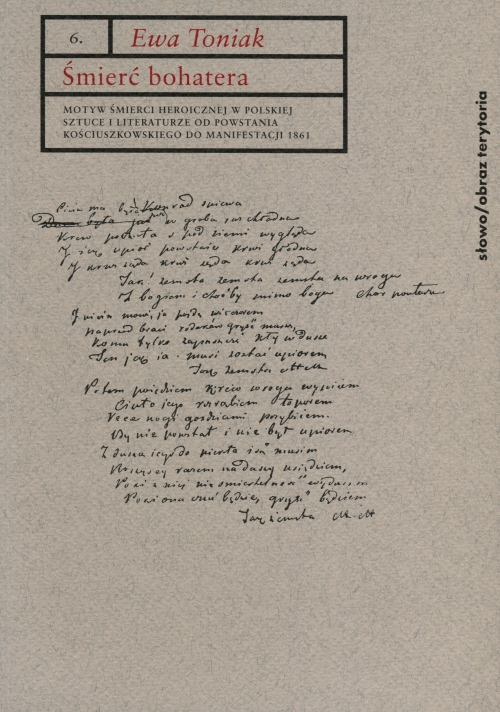 6.
Ewa Toniak
Śmierć bohatera
MOTYW ŚMIERCI HEROICZNEJ W POLSKIEJ
SZTUCE I LITERATURZE OD POWSTANIA
KOŚCIUSZKOWSKIEGO DO MANIFESTACJI 1861
słowo/obraz terytoria
Pieśń ma Konrad śpiewa
była już w grobie już chłodna
Krew poczuła s pod ziemi wygląda
I jak upiór powstaje krwi głodna
I krwi żąda krwi żąda krwi żąda
Tak! zemsta zemsta zemsta na wroga
Z bogiem i choćby mimo boga chór powtarza
I pieśń mówi, ja pójdę wieczorem
naprzód braci rodaków gryźć muszę,
Komu tylko zapuszczę kły w duszę
Ten jak ja musi zostać upiorem
Tak zemsta
Potem pójdziem krew wroga wypijem
Ciało jego rozrąbiem toporem
Ręce nogi goździami przybijem.
By nie powstał i nie był upiorem
Z duszą jego do piekła iść musim
Wszyscy razem na duszy usiędziem,
Póki z niej nieśmiertelność wydusim
Póki ona czuć będzie, gryźć będziem
Tak zemsta